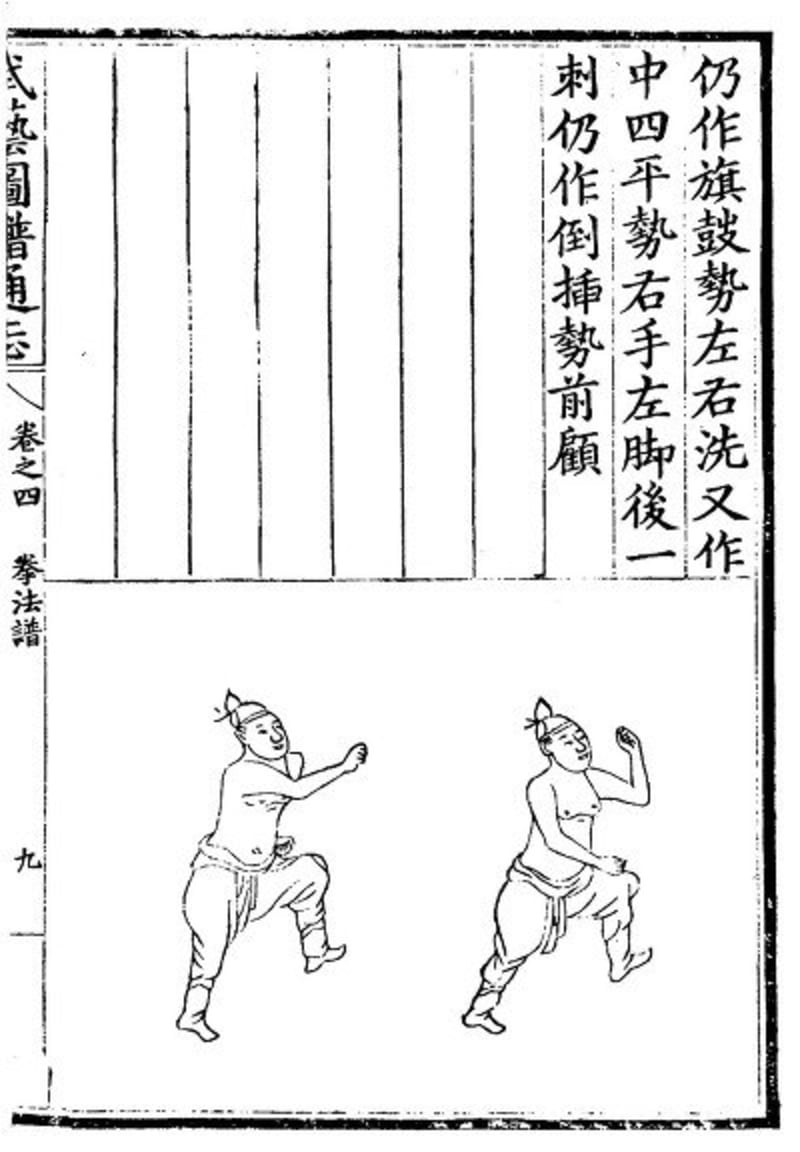 仍作旗鼓勢左右洗又作
中四平勢右手左脚後一
刺仍作倒揷勢前顧
武藝圖譜通志
卷之四 拳法譜
九